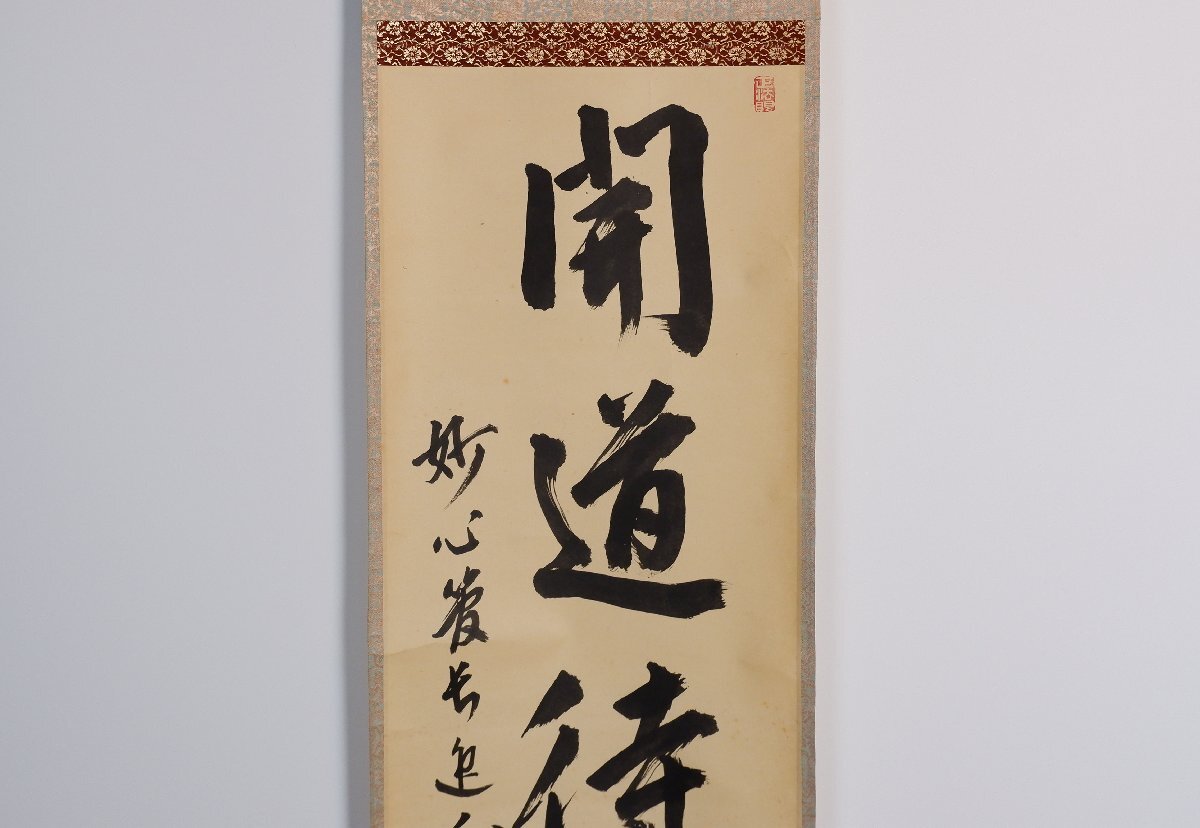 開道待
妙心管長